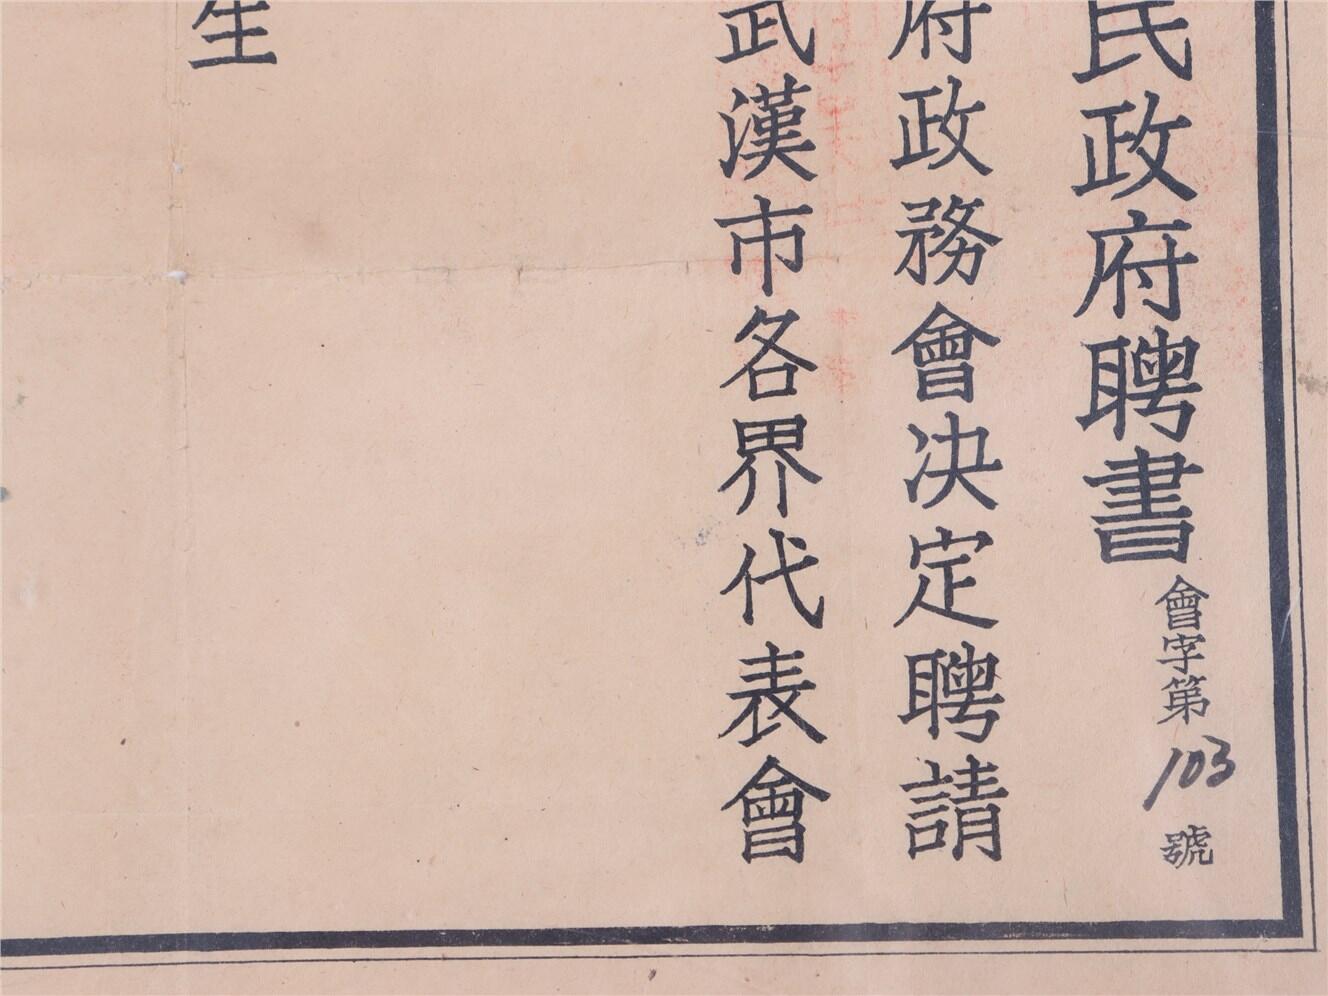 民政府聘書
會字第103號
府政務會決定聘請
武漢市各界代表會
生